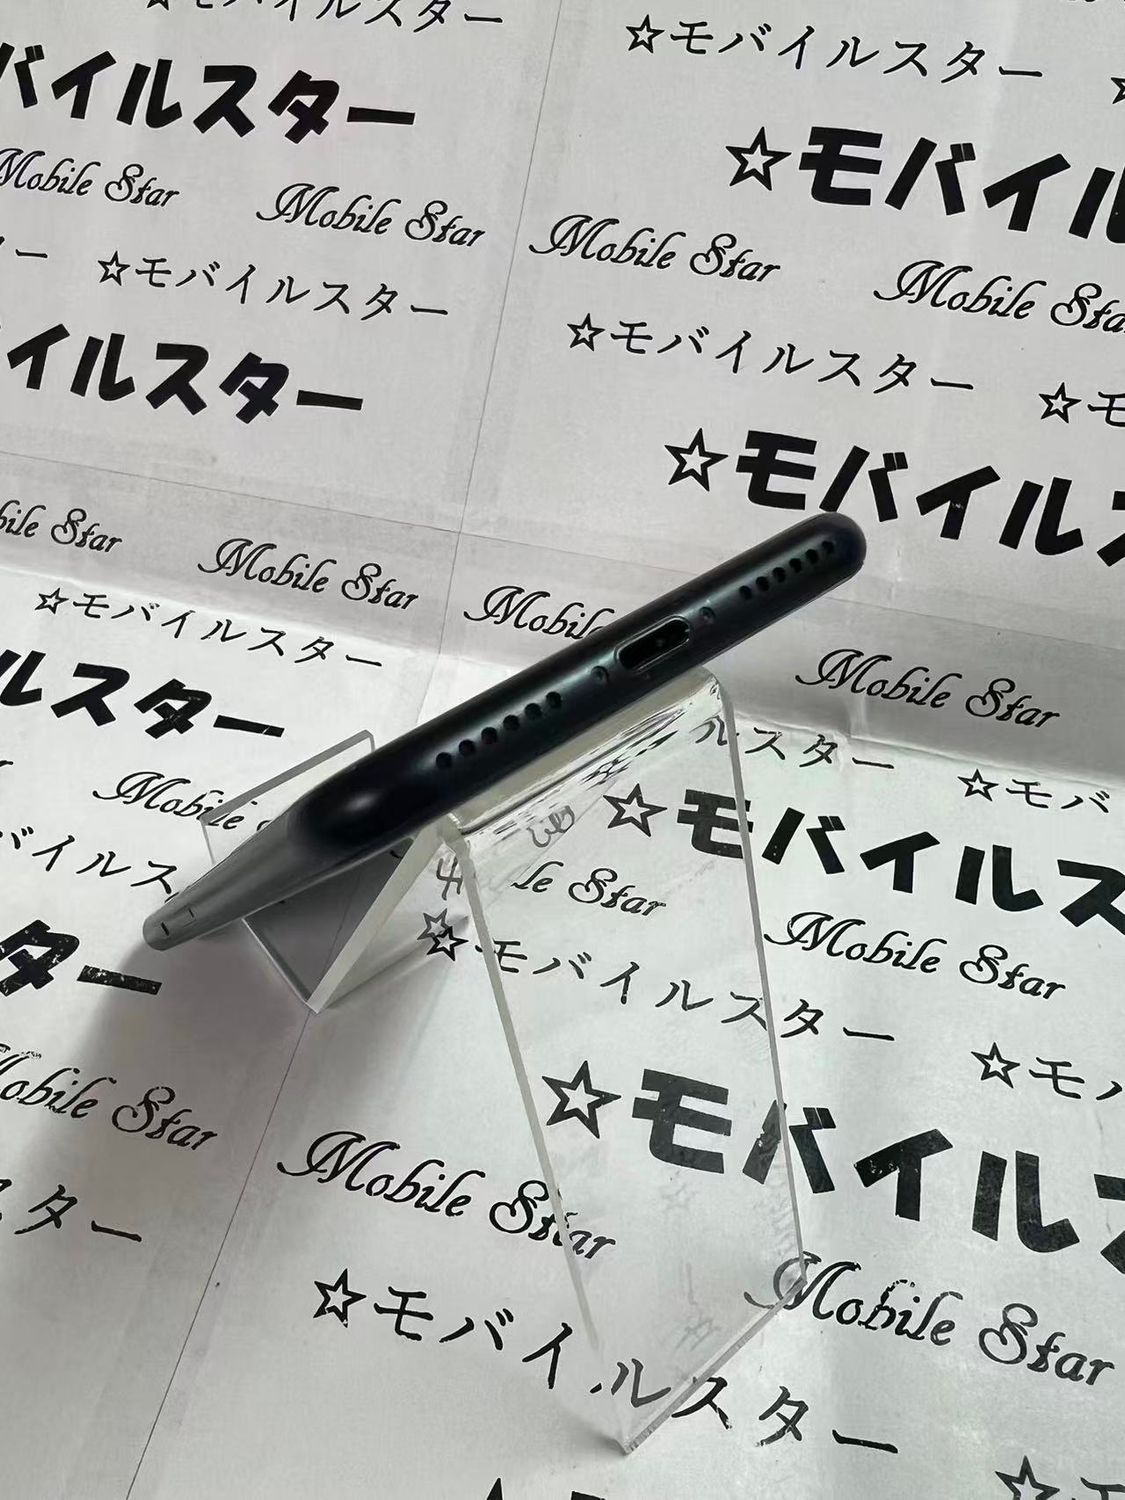 ☆モバイルスター
バイルスター
☆モバイル
Mobile Star
Mobile Star
Mobile Star
Mobile Sta
☆モバイルスター
☆モバイルスター
☆モ
イルスター
☆モバイルス
bile Star
Mobile Star
Mobile
Mobile Star
☆モバイルスター
ルスター
ルスター
☆モバ
Mobile
☆モバイルス
バイルス
le Star
Mobile Star
ター
☆モバイルスター
☆モバ
☆モバイルス
Mobile Star
Mobile Star
Mobile Star
スター
☆モバイルスター